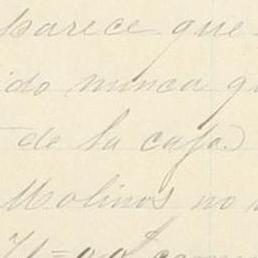 parece que
ido nunca q
de la caja.)
Molinos no